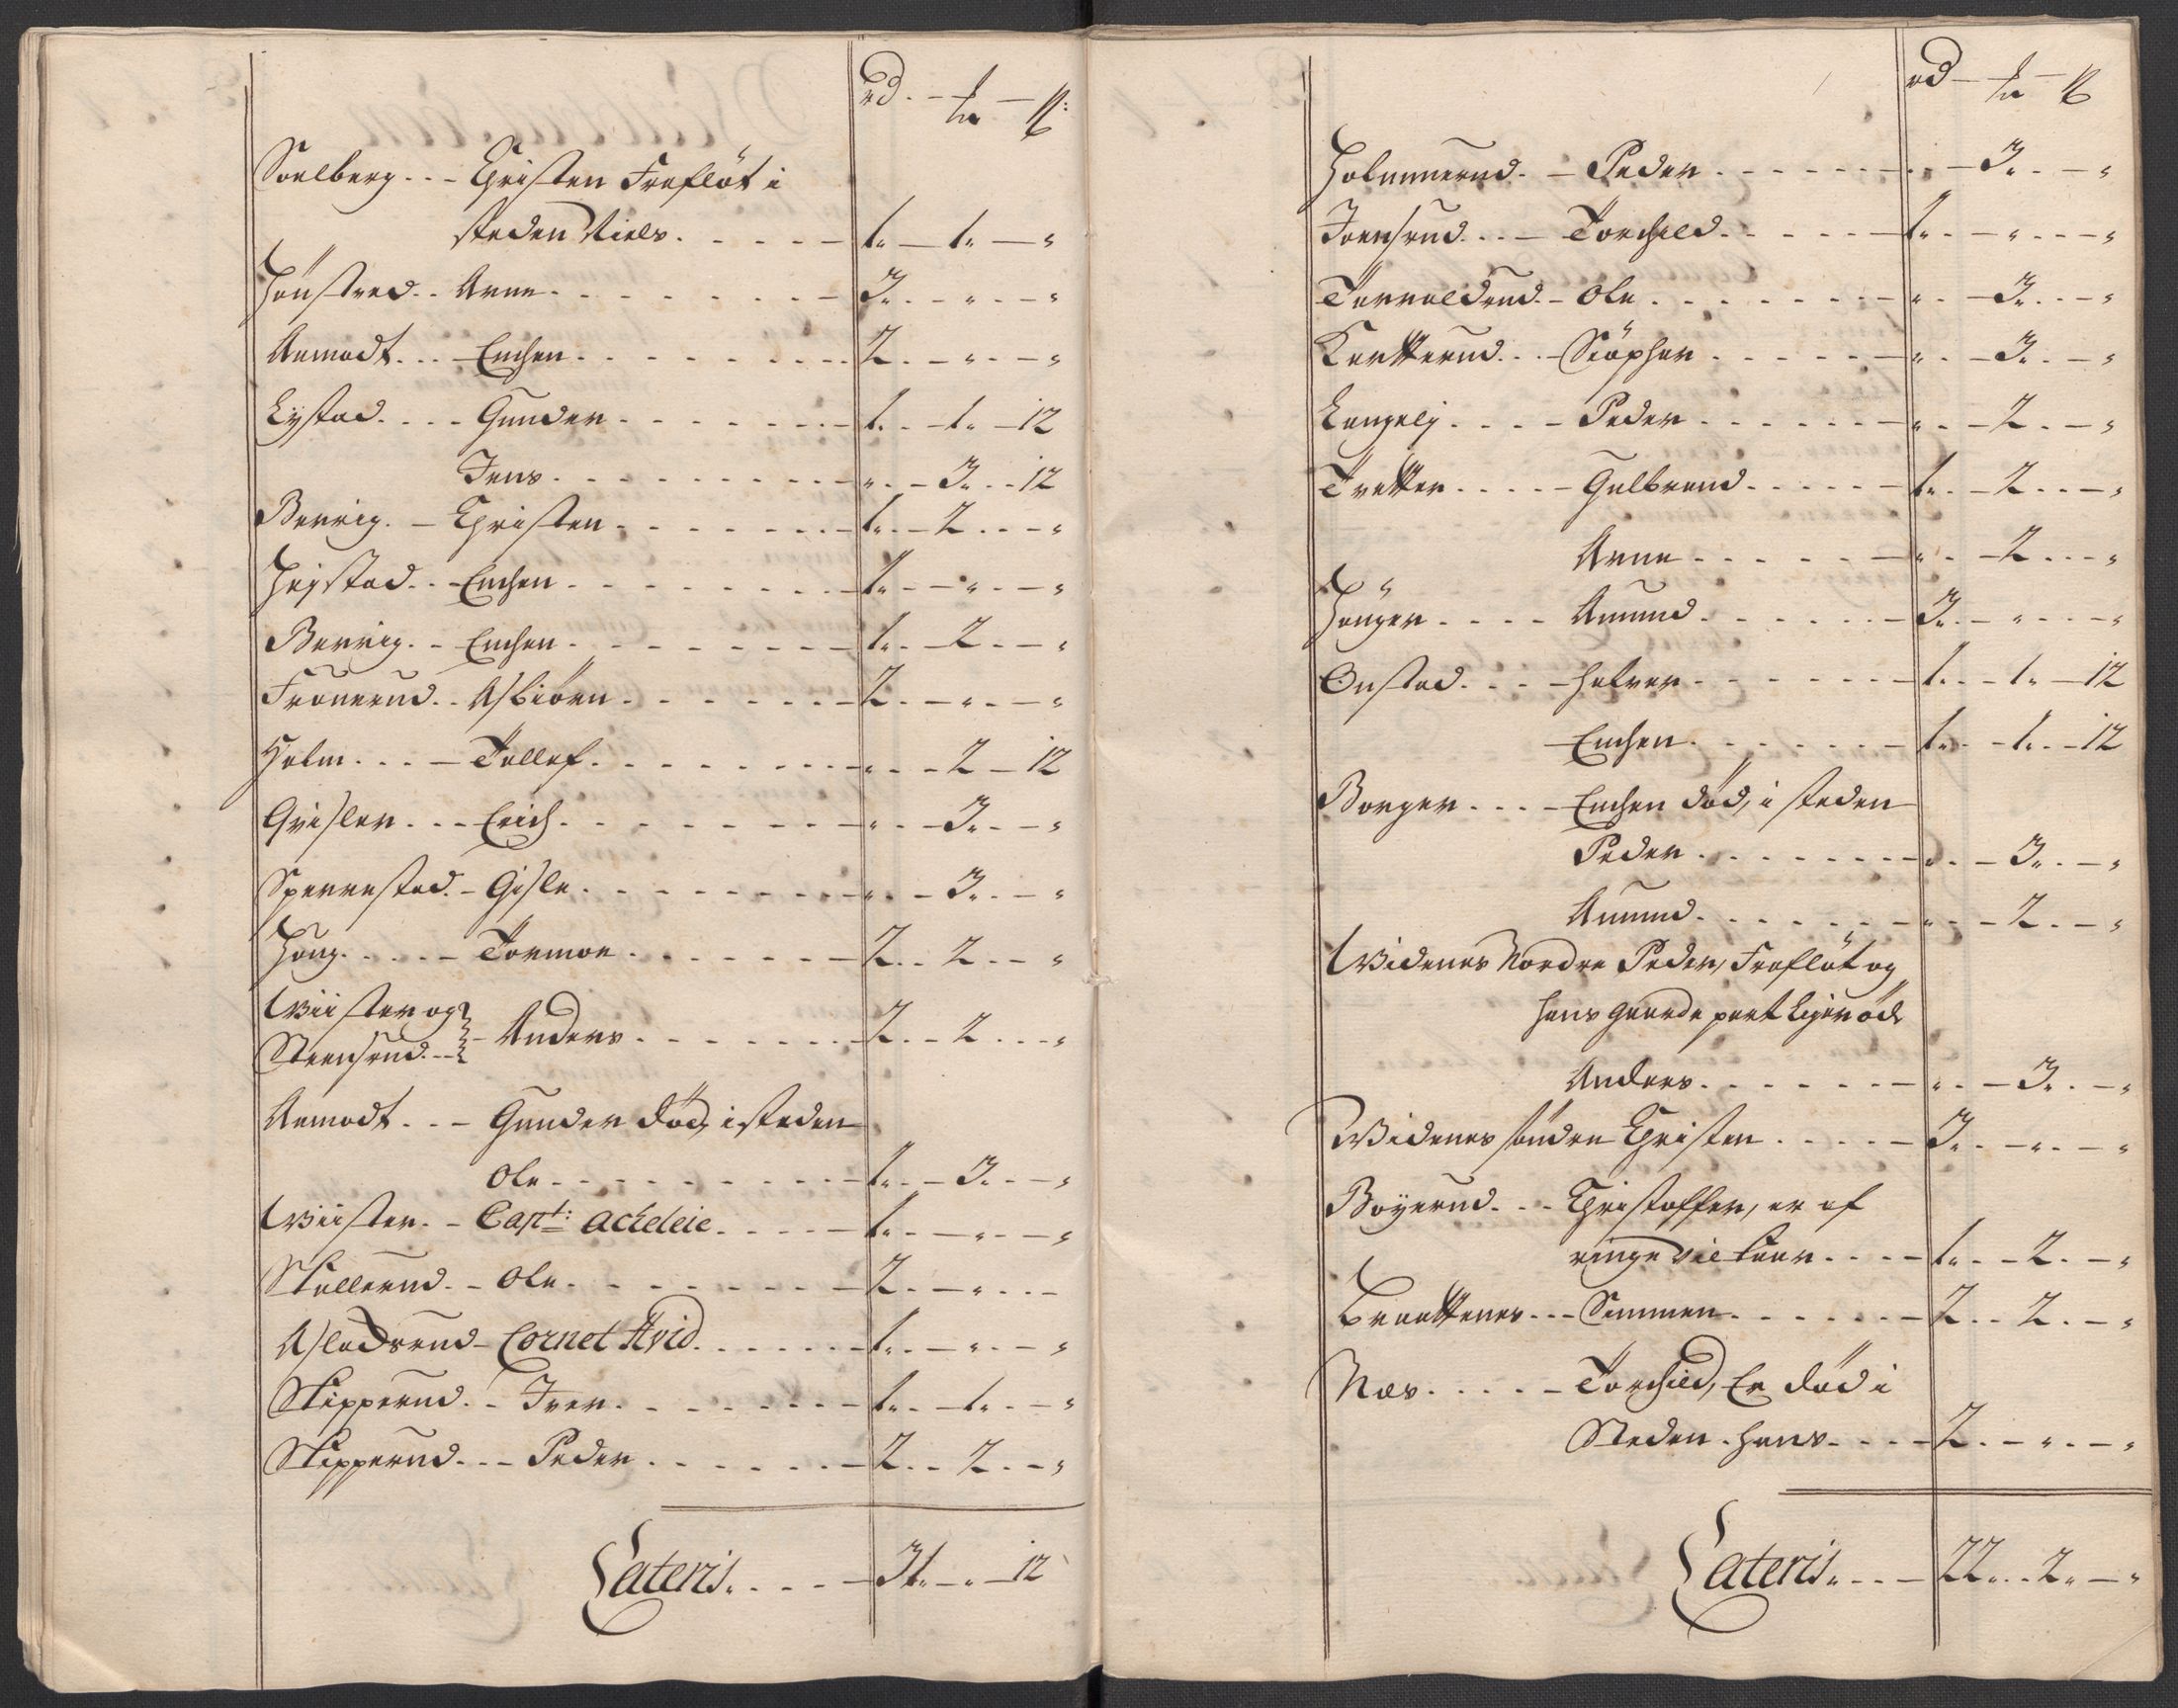 rd. – ₰ – ß:
Soelberg... – Christen Frafløt i
steden Niels. . . . . – 1. – 1. – "
Hønstved. . Arne. . . . . . . . – 3. . – " . – "
Aamodt. . . – Enchen. . . . . . . . . 2. . – " . – "
Lystad. . . . – Gunder. . . . . . . – 1. . – 1. – 12
Jens. . . . . . . . . . – " . . – 3. . . 12
Berrig. – Christen. . . . . . . – 1. . – 2. . . – "
Hejstad. . – Enchen. . . . . . . . – 1. . – " . – "
Berrig. . – Enchen. . . . . . . . – 1. . – 2. . – "
Frønerud. . Asbiørn. . . . . . . – 2. . – " . – "
Holm. . . . – Tollef. . . . . . . . – " . . . 2 – 12
Grisler. . . – Erich. . . . . . . . – " . . – 3. . – "
Sperrestad. – Gisle. . . . . . . . – " . . – 3. . – "
Houg. . . . . – Tormoe. . . . . . . – 2. . 2. . – "
Wiister og
Steensrud. – – Anders. . . . . . . . 2. . – 2. . . – "
Aamodt. . . – Gunder død, i steden
Ole. . . . . . . . . . – 1. . – 3. . – "
Wiister. – Capt: Acheleie. . . . . – 1. . – " . – "
Skullerud. – Ole. . . . . . . . – 2. . – " . . –
Asladsrud – Cornet Hvid. . . . . . . 1. . – " . – "
Skipperud. . – Iver. . . . . . . . – 1. . – 1. . – "
Skipperud. . . – Peder. . . . . . . – 2. . 2. . – "
Lateris. . . . . – 31. – " – 12
rd – ₰ – ß
Holmmerud. – Peder. . . . . . . – " . – 3. . – "
Joensrud. . . – Torchild. . . . . . – 1. . – " . . – "
Torvaldrud. – Ole. . . . . . . . – " . – 3. . . – "
Kratterud. . . – Siøpher. . . . . . – " . – 3. . – "
Langelj. . . . – Peder. . . . . . . – " . – 2. . – "
Tretter. . . . . – Gulbrand. . . . . – 1. . – 2. . . – "
Arne. . . . . . – " . – 2. . . – "
Houger. . . . . Amund. . . . . . . – 3. . – " . . – "
Onstad. . . . – Halver. . . . . . . – 1. . – 1. – 12
– Enchen. . . . . . . . – 1. . – 1. . – 12
Borger. . . . – Enchen død, i steden
Peder. . . . . . . . . – " . – 3. . – "
Amund. . . . . . . – " . . – 2. . – "
Widenes Nordre Peder, Frafløt og
hans gaarde part Ligerøde
Anders. . . . . . . – " . . – 3. . – "
Widenes søndre Christen. . . . . – 3. . – " . – "
Boyerud. . . – Christoffer, er af
ringe vilkaar. . . . . – 1. . – 2. . – "
Braattenes. . . – Simmen. . . . . . . – 2. . 2. . – "
Næs. . . . . – Torchild, Er død i
Steden. Hans. . . . . – 2. . – " . – "
Lateris. . . . – 22. . 2. . – "